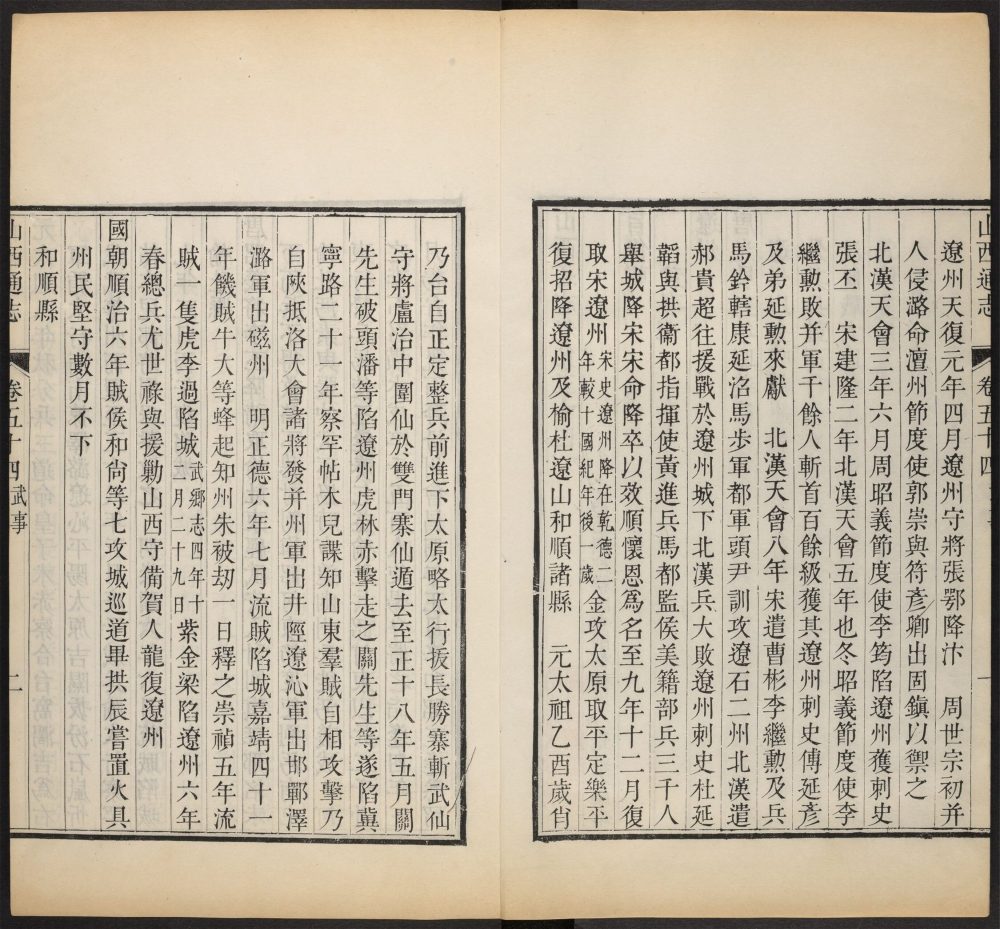 山西通志 卷五十四 一
遼州天復元年四月遼州守將張鄂降汴 周世宗初并
人侵潞命澶州節度使郭崇與符彥卿出固鎮以禦之
北漢天會三年六月周昭義節度使李筠陷遼州獲刺史
張丕 宋建隆二年北漢天會五年也冬昭義節度使李
繼勳敗并軍千餘人斬首百餘級獲其遼州刺史傅延彥
及弟延勲來獻 北漢天會八年宋遣曹彬李繼勲及兵
馬鈐轄康延沼馬步軍都軍頭尹訓攻遼石二州北漢遣
郝貴超往援戰於遼州城下北漢兵大敗遼州刺史杜延
韜與拱衞都指揮使黃進兵馬都監侯美籍部兵三千人
舉城降宋宋命降卒以效順懷恩爲名至九年十二月復
取宋遼州宋史遼州降在乾德二年較十國紀年後一歲金攻太原取平定樂平
復招降遼州及榆杜遼山和順諸縣 元太祖乙酉歲肖
乃台自正定整兵前進下太原略太行拔長勝寨斬武仙
守將盧治中圍仙於雙門寨仙遁去至正十八年五月關
先生破頭潘等陷遼州虎林赤擊走之關先生等遂陷冀
寧路二十一年察罕帖木兒諜知山東羣賊自相攻擊乃
自陝抵洛大會諸將發并州軍出井陘遼沁軍出邯鄲澤
潞軍出磁州 明正德六年七月流賊陷城嘉靖四十一
年饑賊牛大等蜂起知州朱被刼一日釋之崇禎五年流
賊一隻虎李過陷城武鄉志四年十二月二十九日紫金梁陷遼州六年
春總兵尤世祿與援勦山西守備賀人龍復遼州
國朝順治六年賊侯和尙等七攻城巡道畢拱辰嘗置火具
州民堅守數月不下
和順縣
山西通志 卷五十四武事 二